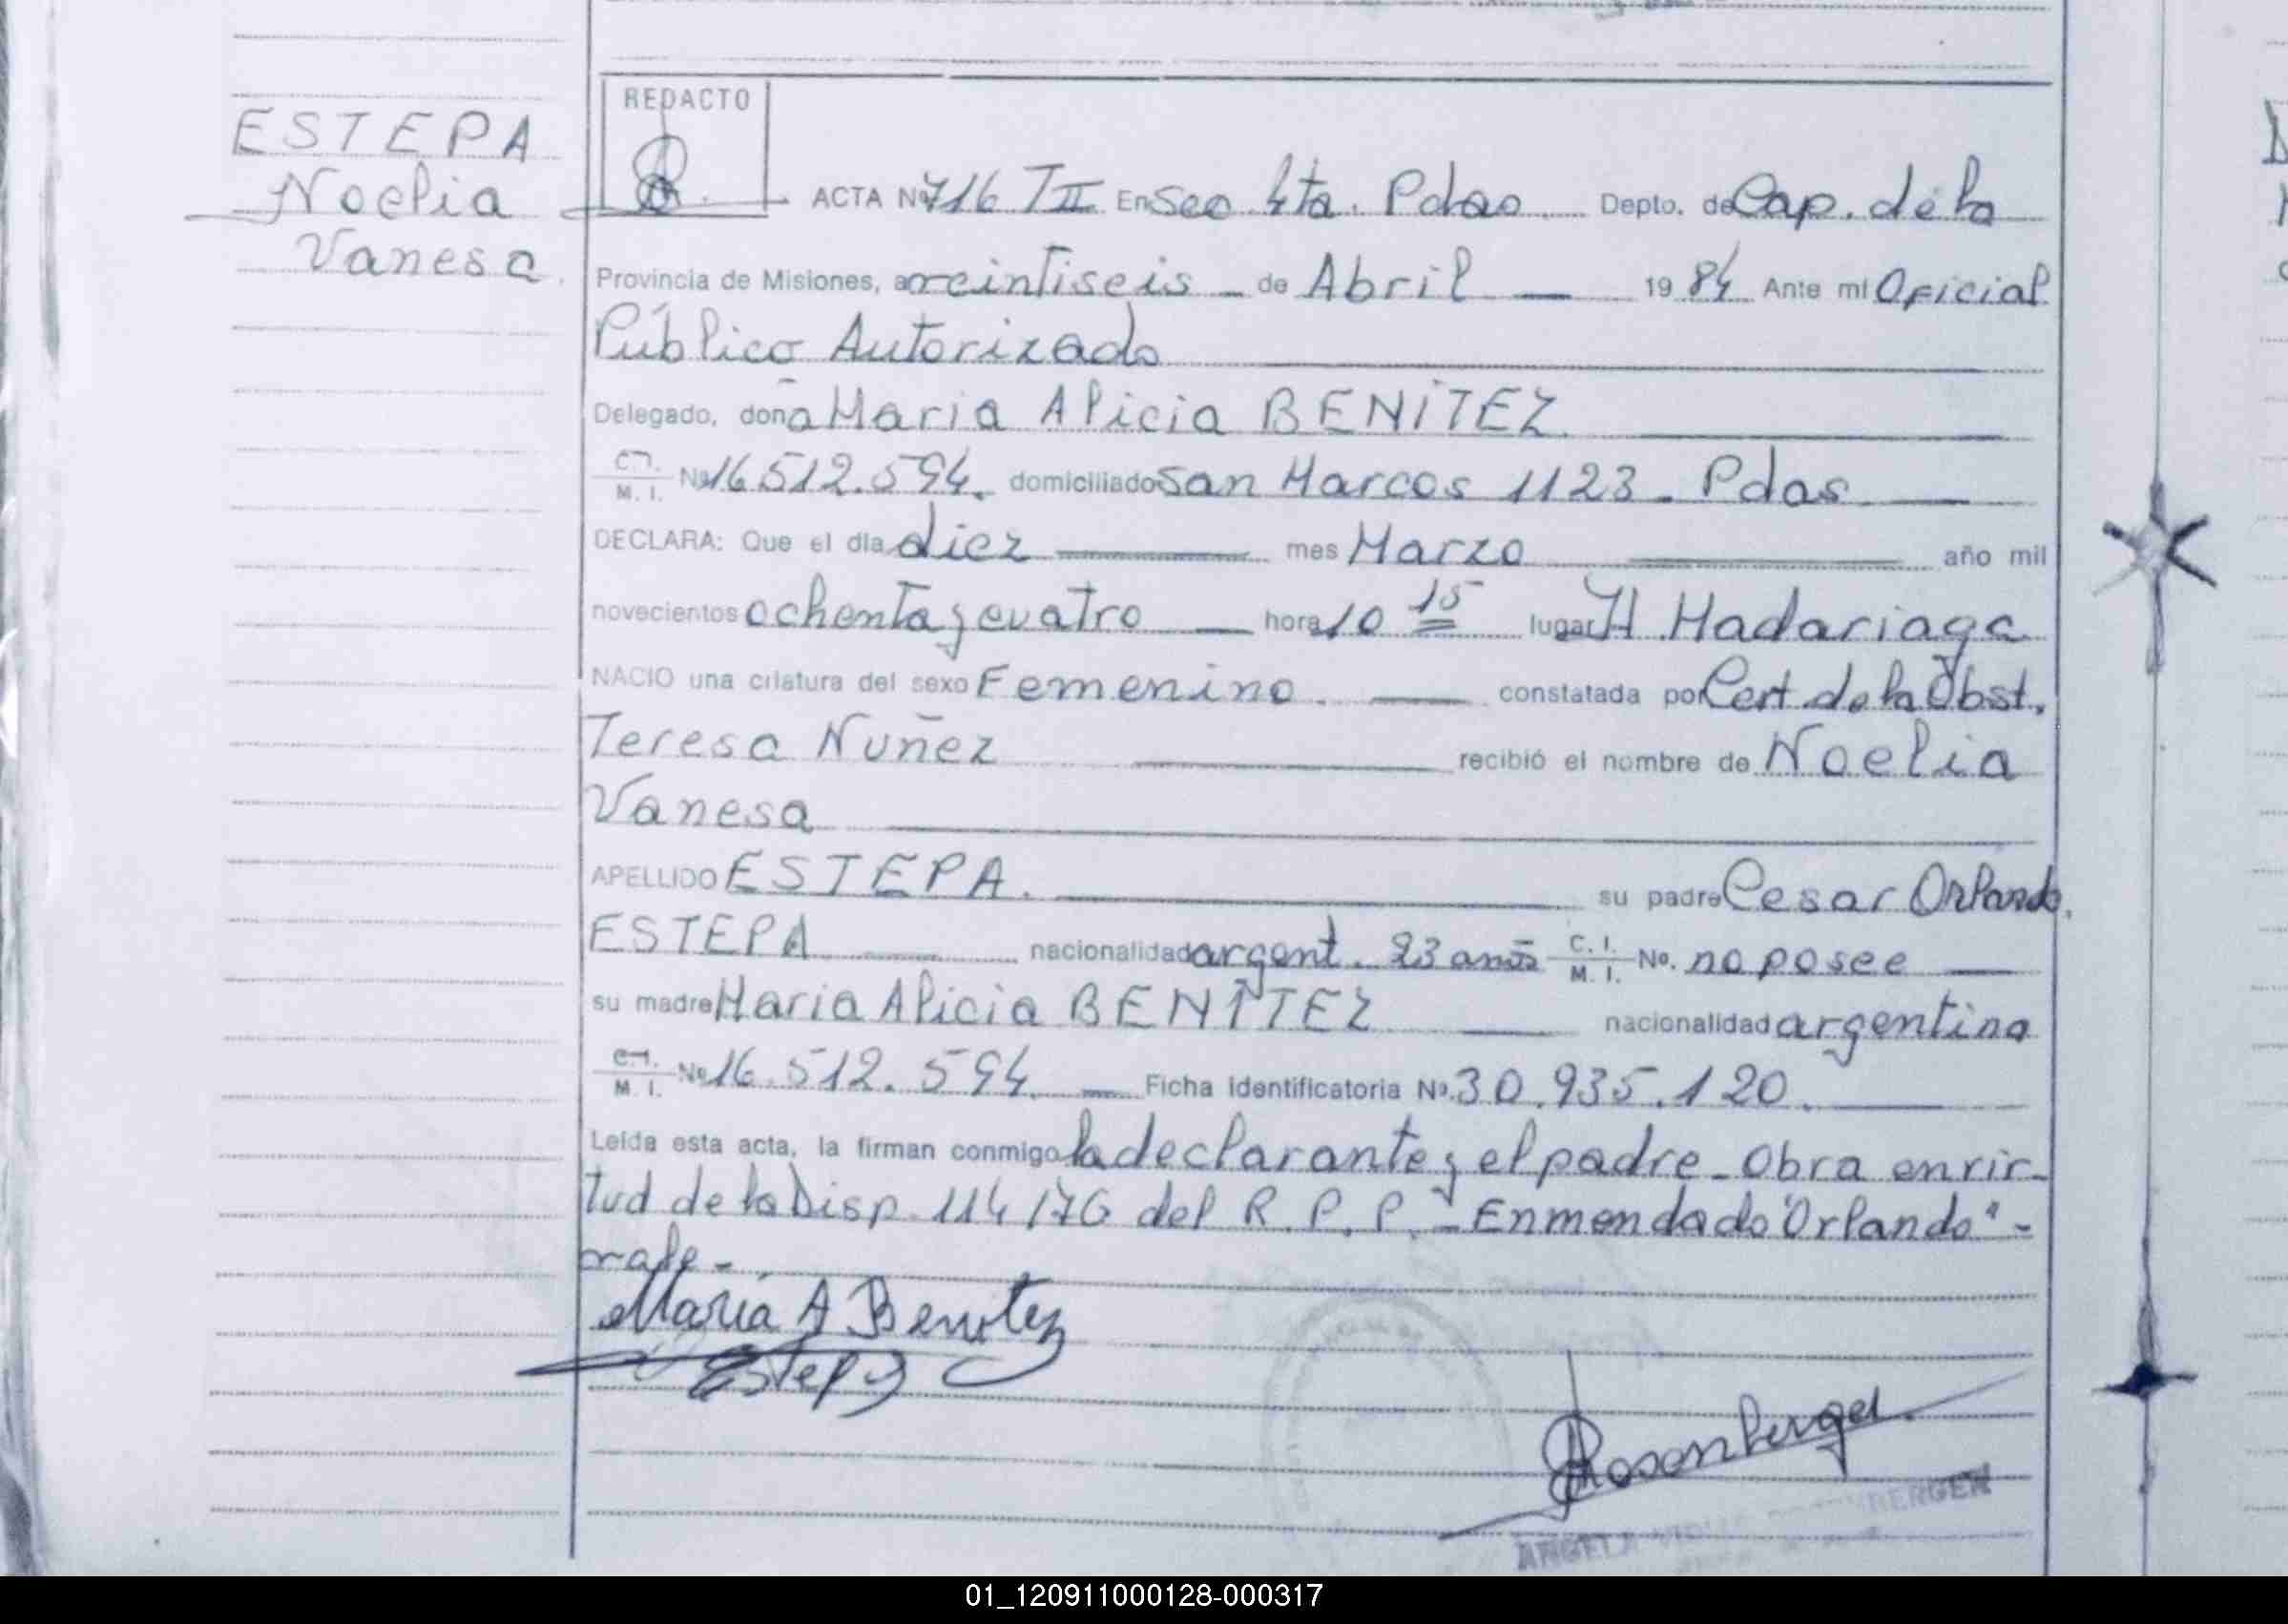 ESTEPA
Noelia
Vanesa.
REDACTO
ACTA Nº 716 TII En Sec 4ta. Pdas Depto. de Cap. de la
Provincia de Misiones, a veintiseis de Abril 1984 Ante mí Oficial
Público Autorizado
Delegado, doña Maria Alicia BENITEZ
C.I. M. I. Nº 16.512.594. domiciliado San Marcos 1123. Pdas
DECLARA: Que el día diez mes Marzo año mil
novecientos ochenta y cuatro hora 10 15 lugar H Madariaga
NACIO una criatura del sexo Femenino. constatada por Cert de la Obst.
Teresa Nuñez recibió el nombre de Noelia
Vanesa
APELLIDO ESTEPA. su padre Cesar Orlando
ESTEPA nacionalidad argent. 23 años C. I. M. I. No. no posee
su madre Maria Alicia BENITEZ nacionalidad argentina
C.I. M. I. Nº 16.512.594. Ficha identificatoria Nº 30.935.120.
Leída esta acta, la firman conmigo la declarante y el padre - Obra en vir-
tud de la Disp. 114/76 del R. P. P. - Enmendado "Orlando" -
vale -
María A Benitez
Estepa
Rosenberger
ANGELA
01_120911000128-000317